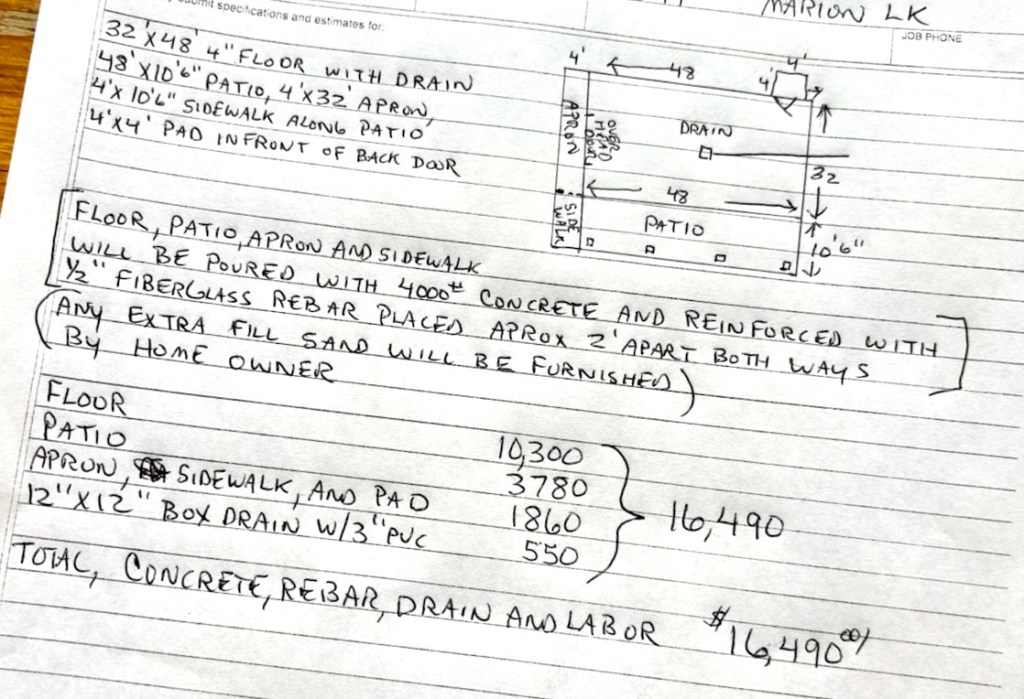 MARION LK
submit specifications and estimates for:
JOB PHONE
32'X48' 4" FLOOR WITH DRAIN
48'X10'6" PATIO, 4'X32' APRON,
4'X 10'6" SIDEWALK ALONG PATIO
4'X4' PAD INFRONT OF BACK DOOR
4'
48
4'
4'
APRON
OVER
HEAD
DOOR
DRAIN
32
48
SIDE
WALK
PATIO
10'6"
FLOOR, PATIO, APRON AND SIDEWALK
WILL BE POURED WITH 4000# CONCRETE AND REINFORCED WITH
1/2" FIBERGLASS REBAR PLACED APROX 2' APART BOTH WAYS
(ANY EXTRA FILL SAND WILL BE FURNISHED)
BY HOME OWNER
FLOOR 10,300
PATIO 3780
APRON, SIDEWALK, AND PAD 1860
12"X12" BOX DRAIN W/3" PVC 550
16,490
TOTAL, CONCRETE, REBAR, DRAIN AND LABOR $16,490 00/